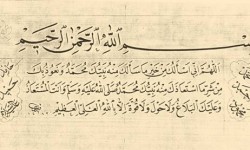 بسم الله الرحمن الرحيم
اللهم إني أسألك من خير ما سألك منه نبيك محمد ونعوذ بك
من شر ما استعاذك منه نبيك محمد صلى الله عليه وسلم وأنت المستعان
وعليك البلاغ ولا حول ولا قوة إلا بالله العلي العظيم